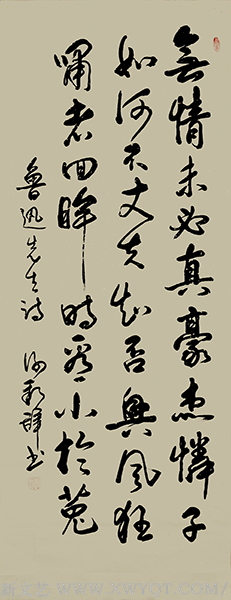 無情未必真豪杰憐子
如何不丈夫知否興風狂
嘯者回眸時看小於菟
魯迅先生詩 書